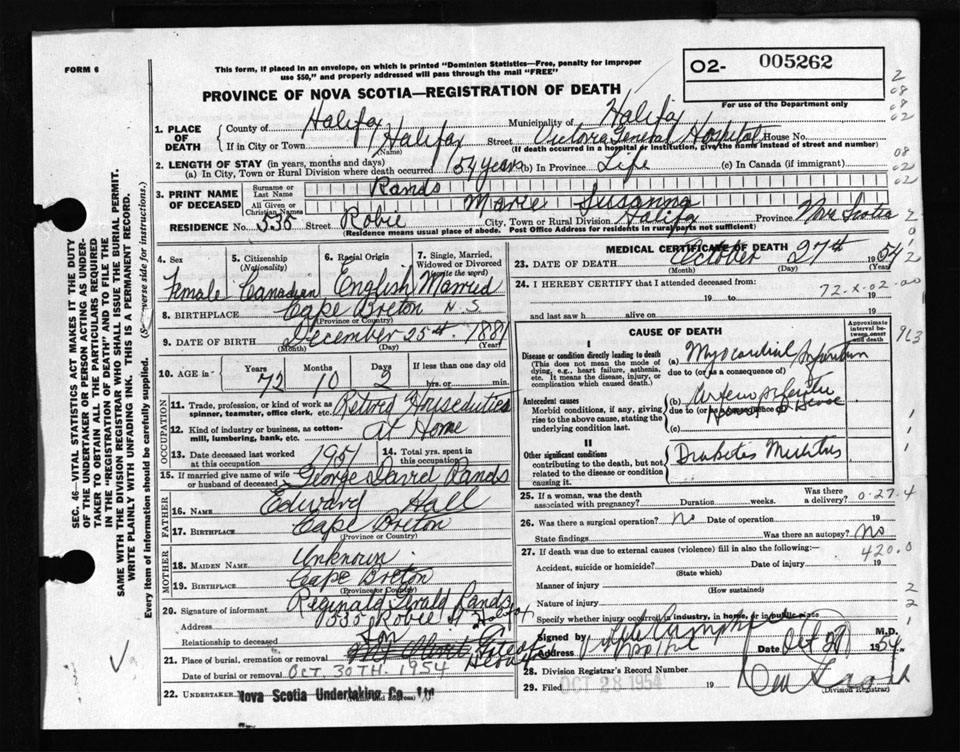 FORM 6
This form, if placed in an envelope, on which is printed "Dominion Statistics—Free, penalty for improper
use $50," and properly addressed will pass through the mail "FREE"
O2- 005262
For use of the Department only
PROVINCE OF NOVA SCOTIA—REGISTRATION OF DEATH
1. PLACE OF DEATH
County of Halifax Municipality of Halifax
If in City or Town Halifax Street Victoria General Hospital House No.
(Name) (If death occurred in a hospital or institution, give the name instead of street and number)
2. LENGTH OF STAY (in years, months and days)
(a) In City, Town or Rural Division where death occurred 54 years (b) In Province Life (c) In Canada (if immigrant)
3. PRINT NAME OF DECEASED
Surname or Last Name Rands
All Given or Christian Names Marie Susanna
RESIDENCE No. 535 Street Robie City, Town or Rural Division Halifax Province Nova Scotia
(Residence means usual place of abode. Post Office Address for residents in rural parts not sufficient)
4. Sex 5. Citizenship (Nationality) 6. Racial Origin 7. Single, Married, Widowed or Divorced (write the word)
Female Canadian English Married
8. BIRTHPLACE Cape Breton N.S.
(Province or Country)
9. DATE OF BIRTH December 25th 1881
(Month) (Day) (Year)
10. AGE in Years Months Days If less than one day old
72 10 2 hrs. or min.
OCCUPATION
11. Trade, profession, or kind of work as spinner, teamster, office clerk, etc. Retired Houseduties
12. Kind of industry or business, as cotton-mill, lumbering, bank, etc. At Home
13. Date deceased last worked at this occupation 1951 14. Total yrs. spent in this occupation
15. If married give name of wife or husband of deceased George Rands
FATHER
16. NAME Edward Hall
17. BIRTHPLACE Cape Breton
(Province or Country)
MOTHER
18. MAIDEN NAME Unknown
19. BIRTHPLACE Cape Breton
(Province or Country)
20. Signature of informant Reginald Rands
Address 535 Robie St Halifax
Relationship to deceased Son
21. Place of burial, cremation or removal Mt Olivet
Date of burial or removal OCT. 30TH. 1954
22. UNDERTAKER Nova Scotia Undertaking Co. Ltd
MEDICAL CERTIFICATE OF DEATH
23. DATE OF DEATH October 27th 1954
(Month) (Day) (Year)
24. I HEREBY CERTIFY that I attended deceased from:
19 to 19
72-X-02-00
and last saw h alive on 19
CAUSE OF DEATH
Approximate interval between onset and death
I
Disease or condition directly leading to death (a) Myocardial Infarction
(This does not mean the mode of dying, e.g., heart failure, asthenia, etc. It means the disease, injury, or complication which caused death.)
due to (or as a consequence of)
Antecedent causes (b)
Morbid conditions, if any, giving rise to the above cause, stating the underlying condition last.
due to (or as a consequence of)
(c)
II
Other significant conditions Diabetes Mellitus
contributing to the death, but not related to the disease or condition causing it.
25. If a woman, was the death associated with pregnancy? Duration weeks. Was there a delivery? 0-27-4
26. Was there a surgical operation? No Date of operation 19
State findings Was there an autopsy? No
27. If death was due to external causes (violence) fill in also the following:— 420.0
Accident, suicide or homicide? Date of injury 19
(State which)
Manner of injury
(How sustained)
Nature of injury
Specify whether injury occurred in industry, in home, or in public place
Signed by M.D.
Address Date Oct 28 1954
28. Division Registrar's Record Number
29. Filed OCT 28 1954 19
(Division Registrar)
SEC. 46—VITAL STATISTICS ACT MAKES IT THE DUTY
OF THE UNDERTAKER OR PERSON ACTING AS UNDER-
TAKER TO OBTAIN ALL THE PARTICULARS REQUIRED
IN THE "REGISTRATION OF DEATH" AND TO FILE THE
SAME WITH THE DIVISION REGISTRAR WHO SHALL ISSUE THE BURIAL PERMIT.
WRITE PLAINLY WITH UNFADING INK. THIS IS A PERMANENT RECORD.
Every item of information should be carefully supplied. (See reverse side for instructions.)